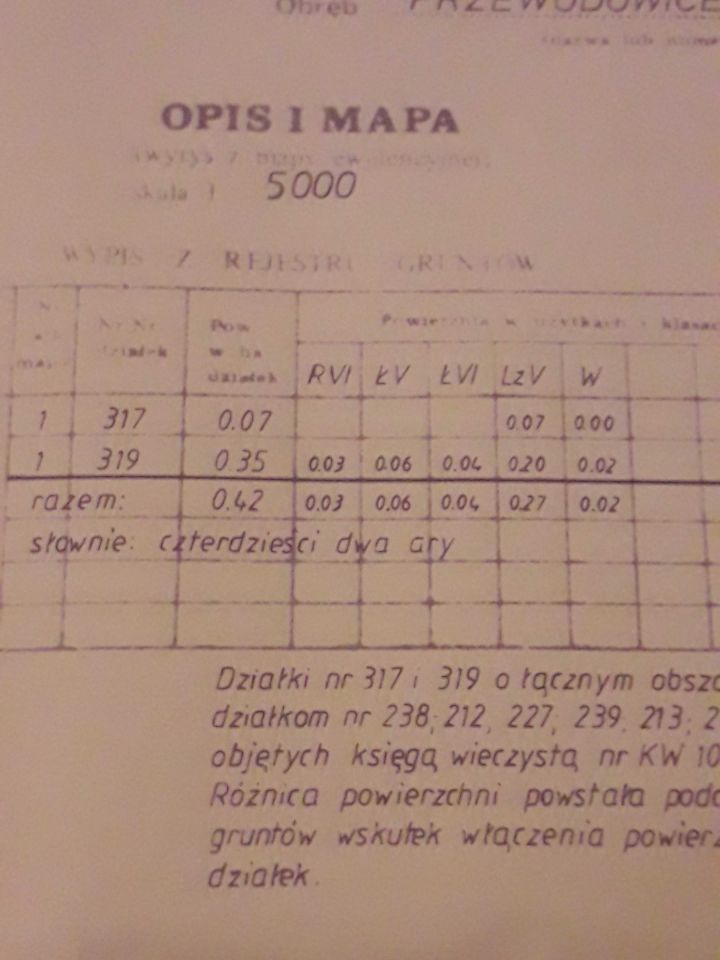 Obręb PRZEWODOWICE
OPIS I MAPA
(wyrys z mapy ewidencyjnej)
skala 1 5000
WYPIS Z REJESTRU GRUNTÓW
Nr Nr działek Pow w ha działek Powierzchnia w użytkach i klasac
RVI ŁV ŁVI LzV W
1 317 0.07 0.07 0.00
1 319 0.35 0.03 0.06 0.04 0.20 0.02
razem: 0.42 0.03 0.06 0.04 0.27 0.02
słownie: czterdzieści dwa ary
Działki nr 317 i 319 o łącznym obsza
działkom nr 238; 212, 227, 239, 213; 2
objętych księgą wieczystą nr KW 10
Różnica powierzchni powstała podc
gruntów wskutek włączenia powierz
działek.